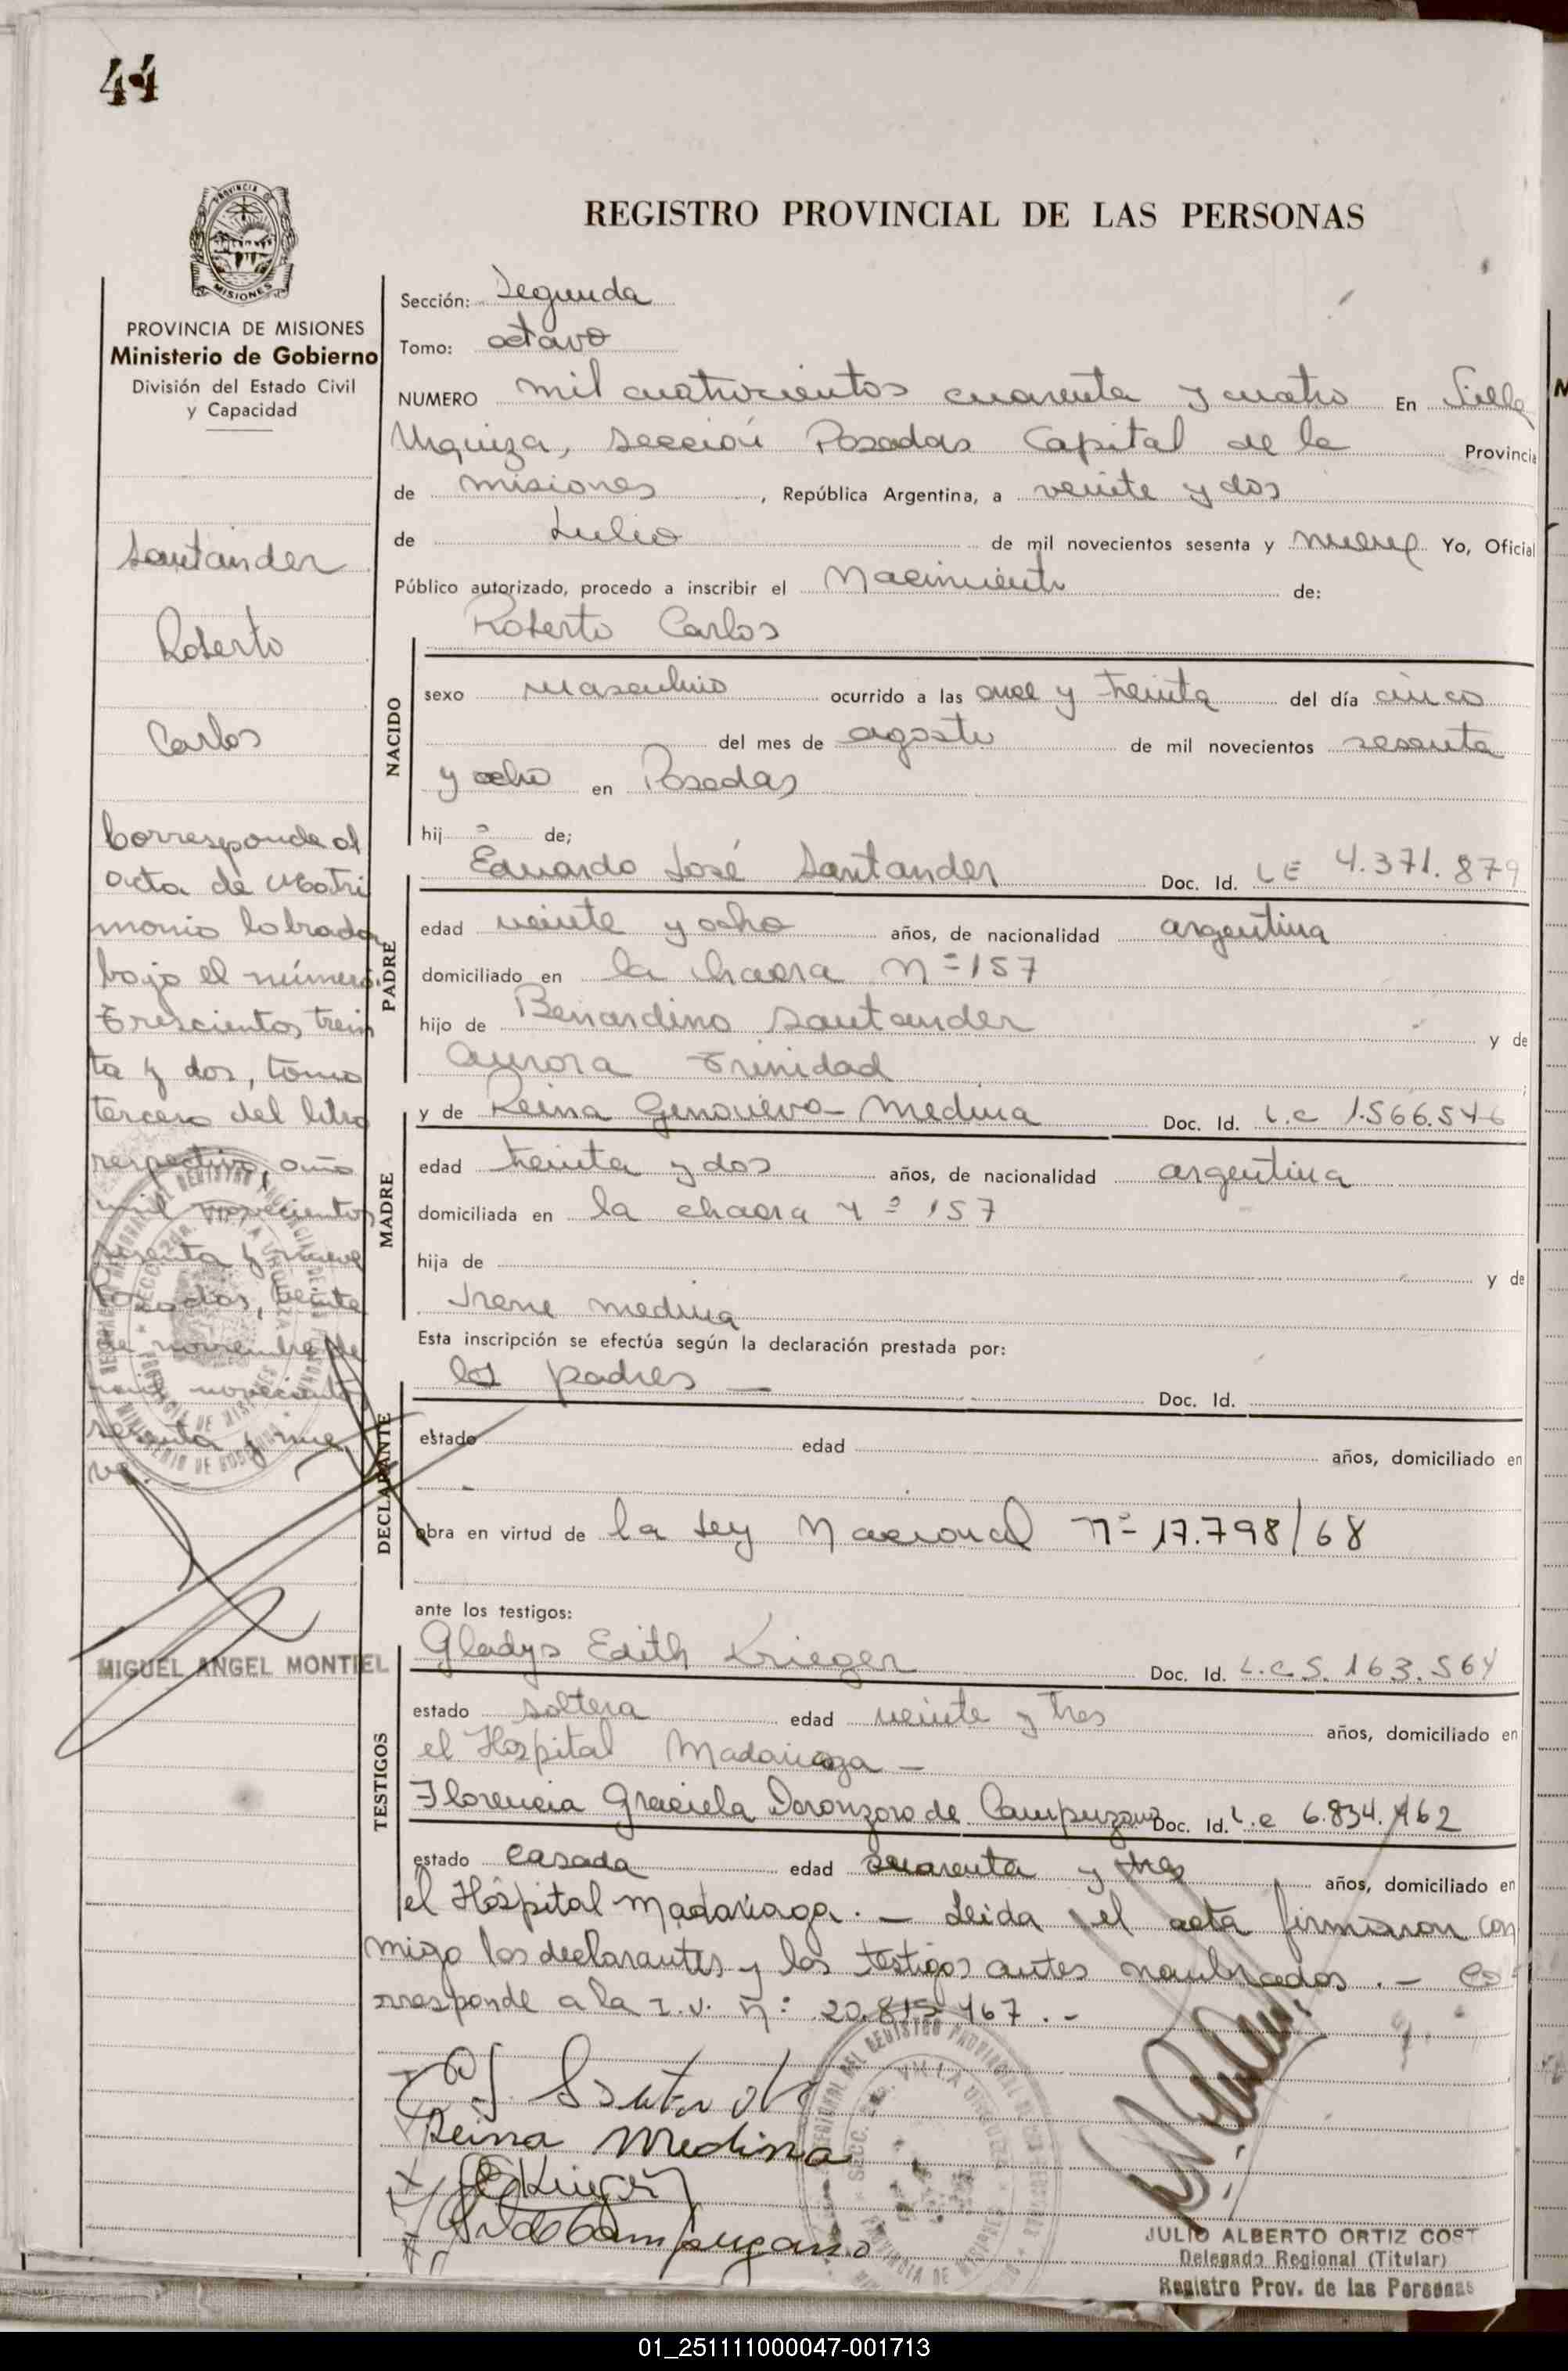 44
REGISTRO PROVINCIAL DE LAS PERSONAS
PROVINCIA
MISIONES
PROVINCIA DE MISIONES
Ministerio de Gobierno
División del Estado Civil
y Capacidad
Santander
Roberto
Carlos
Corresponde al
acta de Matri
monio labrada
bajo el número
Trescientos trein
ta y dos, tomo
tercero del libro
respectivo, año
mil novecientos
sesenta y nueve
Posadas, veinte
de noviembre de
mil novecientos
sesenta y nue
ve.
MIGUEL ANGEL MONTIEL
Sección: Segunda
Tomo: octavo
NUMERO mil cuatrocientos cuarenta y cuatro En Villa
Urquiza, sección Posadas Capital de la Provincia
de misiones, República Argentina, a veinte y dos
de Julio de mil novecientos sesenta y nueve Yo, Oficial
Público autorizado, procedo a inscribir el Nacimiento de:
Roberto Carlos
NACIDO
sexo masculino ocurrido a las once y treinta del día cinco
del mes de agosto de mil novecientos sesenta
y ocho en Posadas
hijo de;
Eduardo José Santander Doc. Id. LE 4.371.879
PADRE
edad veinte y ocho años, de nacionalidad argentina
domiciliado en la chacra Nº 157
hijo de Bernardino Santander y de
Aurora Trinidad
y de Reina Genoveva Medina Doc. Id. L.C 1.566.546
MADRE
edad treinta y dos años, de nacionalidad argentina
domiciliada en la chacra nº 157
hija de y de
Irene medina
Esta inscripción se efectúa según la declaración prestada por:
los padres — Doc. Id.
DECLARANTE
estado edad años, domiciliado en
obra en virtud de la Ley Nacional nº 17.798/68
ante los testigos:
Gladys Edith Krieger Doc. Id. L.C 5.163.564
TESTIGOS
estado soltera edad veinte y tres años, domiciliado en
el Hospital Madariaga —
Florencia Graciela de Campuzano Doc. Id. L.C 6.834.462
estado casada edad cuarenta y tres años, domiciliado en
el Hospital Madariaga. — Leida el acta firmaron con
migo los declarantes y los testigos antes nombrados. — Co
rresponde a la I.V. nº: 20.815.467. -
Reina Medina
JULIO ALBERTO ORTIZ COST
Delegado Regional (Titular)
Registro Prov. de las Personas
01_251111000047-001713